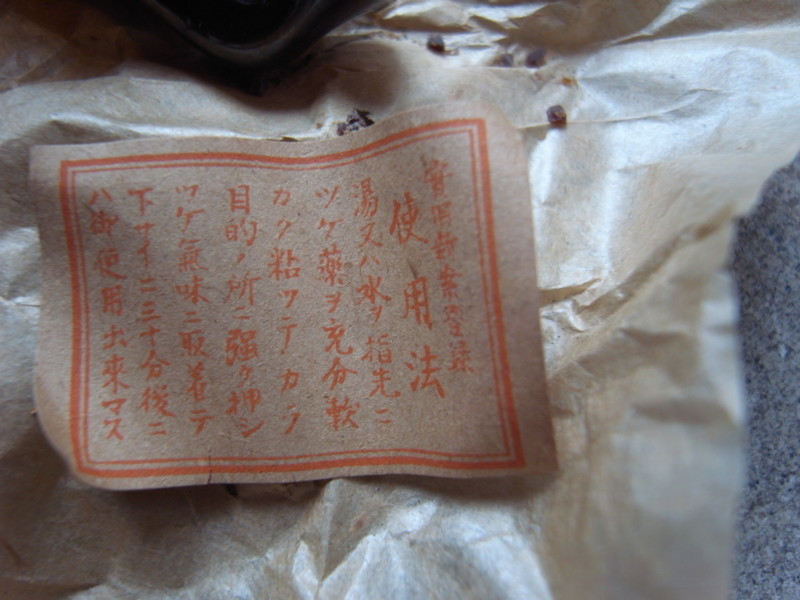 實用新案登録
使用法
湯又ハ水ヲ指先ニ
ツケ薬ヲ充分軟
カク粘ツテカラ
目的ノ所ニ強ク押シ
ツケ氣味ニ取着テ
下サイ二三十分後ニ
ハ御使用出來マス